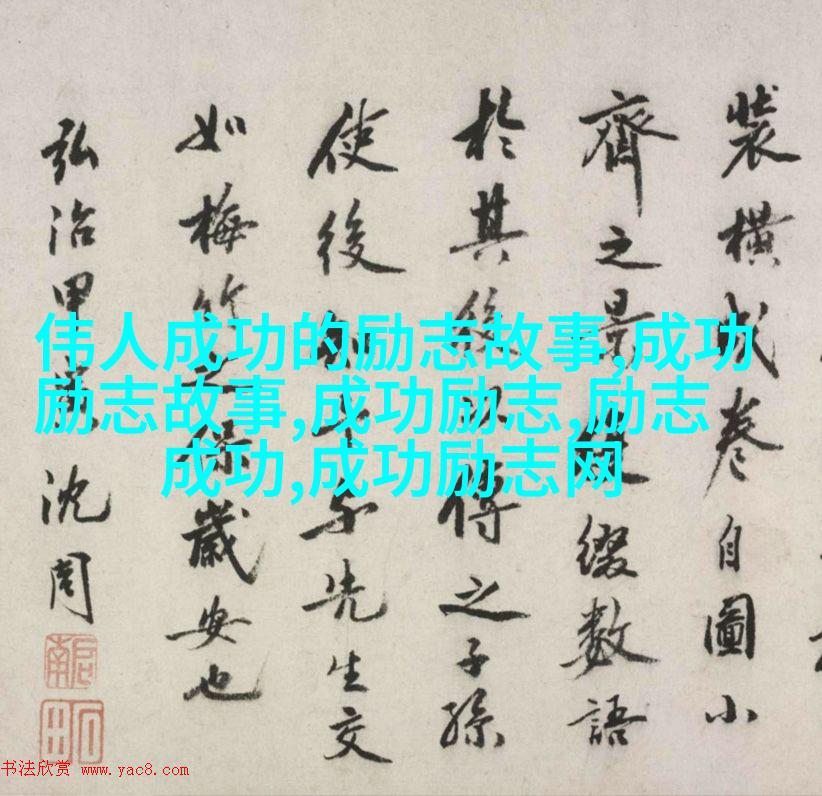 伟人成功的励志故事,成功
励志故事,成功励志,励志
成功,成功励志网
裝橫成卷自圖小
齊之景綴數語
於其後以傳之子孫
使後先生交
如梅竹之保歲安也
弘治甲沈周
书法欣赏 www.yac8.com